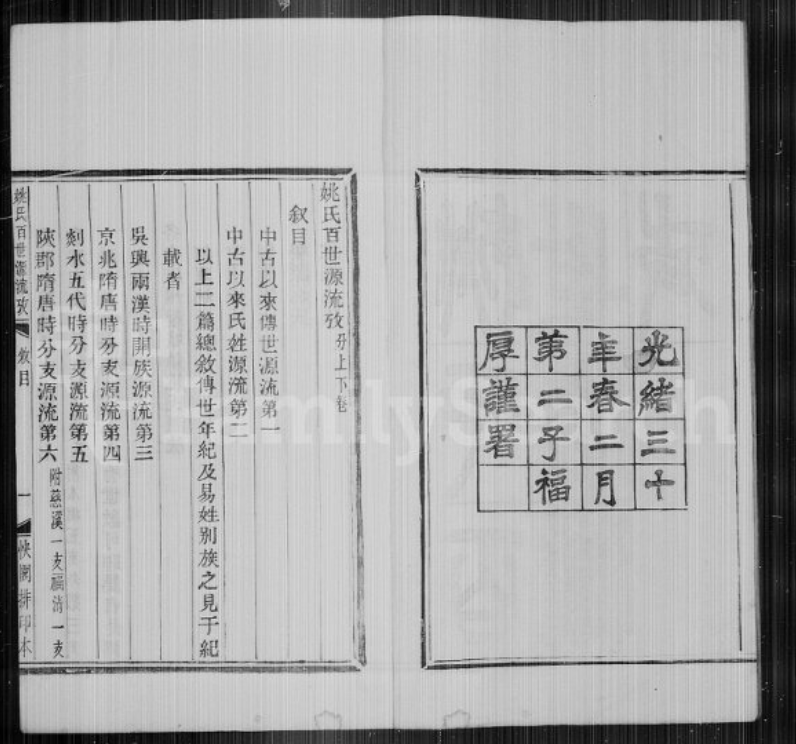 光緒三十
年春二月
第二子福
厚謹署
姚氏百世源流攷分上下卷
敘目
中古以來傳世源流第一
中古以來氏姓源流第二
以上二篇總敘傳世年紀及易姓別族之見于紀
載者
吳興兩漢時開族源流第三
京兆隋唐時分支源流第四
剡水五代時分支源流第五
陝郡隋唐時分支源流第六 附慈溪一支福清一支
姚氏百世源流攷 敘目 一 排印本